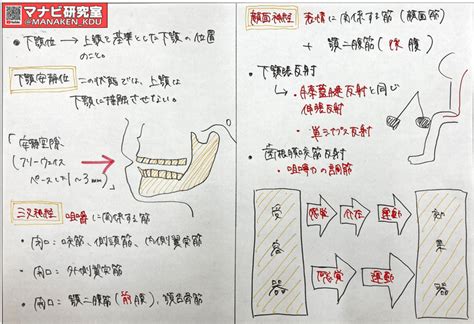 マナビ研究室
@MANAKEN_KDU
・下顎位 → 上顎を基準とした下顎の位置
のこと。
下顎安静位 この状態では、上顎は
下顎に接触させない。
「安静空隙
(フリーウェイ
スペース」(~3mm)
三叉神経 咀嚼に関係する筋
・閉口: 咬筋、側頭筋、内側翼突筋
・開口: 外側翼突筋
・開口: 顎二腹筋(前腹)、顎舌骨筋
顔面神経 表情に関係する筋(顔面筋)
+ 顎二腹筋(後腹)
・下顎張反射
・膝蓋腱反射と同じ
伸張反射
・単シナプス反射
・歯根膜咬筋反射
・咀嚼力の調節
受容器
感覚
介在
運動
効果器
感覚
運動